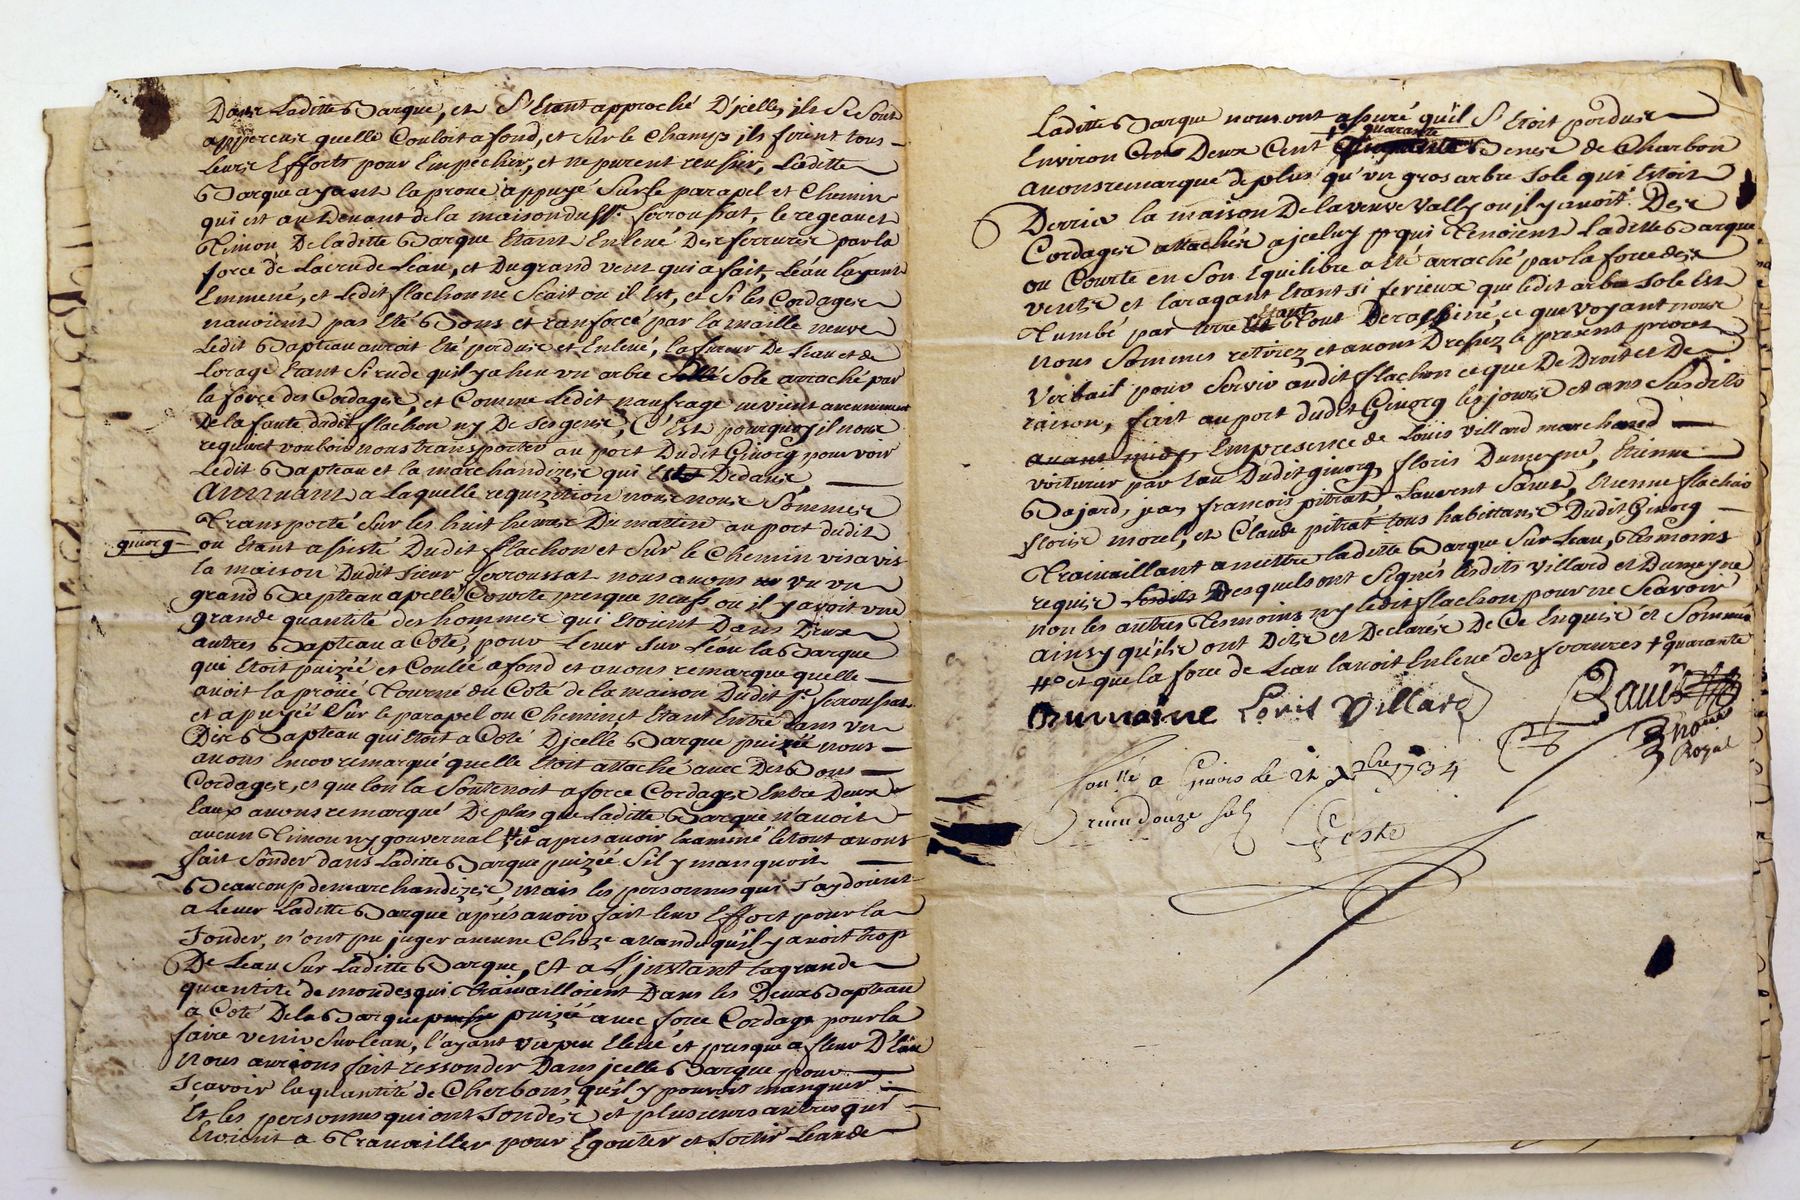 Dans Laditte Barque, et S'Etant approché D'jcelle, ils Se Sont
apperceus quelle Couloit a fond, et Sur le Champ ils firent tous
leurs Efforts pour Empecher, et ne purent reussir, Laditte
Barque ayant la proue appuyé Sur le parapel et Chemin
qui est au Devant de la maison du Sr. ferroussat, le
Timon De laditte Barque Etant Enlevé Des ferrures par la
force de La cru de Leau, et Du grand vent qui a fait, Leau layant
Emmené, et Ledit flachon ne Scait ou il Est, et Si les Cordages
navoient pas Eté Bons et ranforcé par la maille neuve
Ledit Bapteau auroit Eté perdus et Enlevé, la fureur De Leau et de
Lorage Etant Si rude quil y a heu un arbre Sole arraché par
la force des Cordages, et Comme Ledit naufrage ne vient aucunement
De la faute dudit flachon ny De Ses gens, C'Est pourquoy il nous
requiert vouloir nous transporter au port Dudit Givorg pour voir
Ledit Bapteau et la marchandizes qui Est Dedans
Annuant a Laquelle requizition nous nous Sommes
Transporté Sur les huit heures Du mattin au port dudit
givorg
ou Etant assisté Dudit flachon et Sur le Chemin vis a vis
la maison Dudit Sieur ferroussat nous avons vu un
grand Bapteau apellé Courte presque neuf ou il y avoit une
grande quantité des hommes qui Etoient Dans Deux
autres Bapteau a Coté, pour Lever Sur Leau la Barque
qui Etoit puizée et Coulée a fond et avons remarque quelle
avoit la proüe Tourné du Coté de la maison Dudit Sr. ferroussat
et apuyée Sur le parapel ou Chemin et Etant Entré dans un
Des Bapteau qui Etoit a Coté Djcelle Barque puizée nous
avons Encor remarqué quelle Etoit attaché avec Des Bons
Cordages, et que lon la Soutenoit a force Cordages Entre Deux
Eaux avons remarqué De plus que Laditte Barque n'avoit
aucun Timon ny gouvernal #° et apres avoir Examiné le tout avons
fait Sonder dans Laditte Barque puizée S'il y manquoit
Beaucoup de marchandizes, mais les personnes qui S'aydoient
a Lever Laditte Barque aprés avoir fait leur Effort pour la
Sonder, n'ont pu juger aucune Choze attandu qu'il y avoit trop
De Leau Sur Laditte Barque, Et a L'jnstant la grande
quantité de mondes qui Travailloient Dans les Deux Bapteau
a Coté De la Barque puizée avec force Cordage pour la
faire venir Sur Leau, l'ayant un peu Elevé et presque a fleur D'Eau
Nous aurions fait ressonder Dans jcelle Barque pour
Scavoir la quantité de Cherbons qu'il y pouvoit manquer
Et les personnes qui ont Sondés et plusieurs autres qui
Etoient a Travailler pour Egouter et Sortir Leau de
Laditte Barque nous ont assuré qu'il S'Etoit perdus
+° quarante
Environ Deux Cent Benes de Charbon
avons remarqué de plus qu'un gros arbre Sole qui Etoit
Derrier la maison De la veuve Vally ou il y avoit Des
Cordages attachés a jceluy qui Tenoient Laditte Barque
ou Courte en Son Equilibre a Eté arraché par la force des
vents et laragant Etant Si ferieux que ledit arbre Sole Est
Tumbé par terre Etant Tout Deraciné, ce que voyant nous
Nous Sommes retirez et avons Dressez le present proces
Verbail pour Servir audit flachon ce que De Droit et De
raison, fait au port dudit Givorg les jours et ans Susdits
avant midy Empresence de Louis Villard marchand
voiturier par Eau Dudit givorg, floris Dumeyne, Etienne
Bajard, jean francois pitrat, Laurent Sauze, Etienne flachon
floris morel, et Claude pitrat tous habittans Dudit Givorg
Travaillant a mettre laditte Barque Sur Leau, temoins
requis Desquels ont Signés lesdits Villard et Dumeyne
non les autres Tesmoins ny ledit flachon pour ne Scavoir
ainsy qu'ils ont Dits et Declarés De Ce Enquis et Sommés
#° et que la force de Leau lavoit Enlevé des ferrures +° quarante
Dumaine Louis Villard
Royal
a Givors le 21 Xbre 1734
receu douze sols